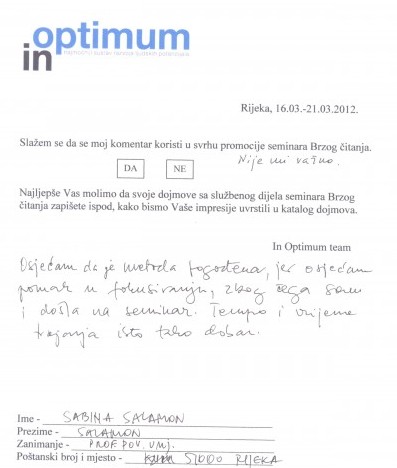 in optimum
Rijeka, 16.03.-21.03.2012.
Slažem se da se moj komentar koristi u svrhu promocije seminara Brzog čitanja.
DA NE Nije mi važno.
Najljepše Vas molimo da svoje dojmove sa službenog dijela seminara Brzog
čitanja zapišete ispod, kako bismo Vaše impresije uvrstili u katalog dojmova.
In Optimum team
Osjećam da je metoda pogođena, jer osjećam
pomak u fokusiranju, zbog čega sam
i došla na seminar. Tempo i vrijeme
trajanja isto tako dobar.
Ime - SABINA SALAMON
Prezime - SALAMON
Zanimanje - PROF. POV. UMJ.
Poštanski broj i mjesto - 51000 RIJEKA